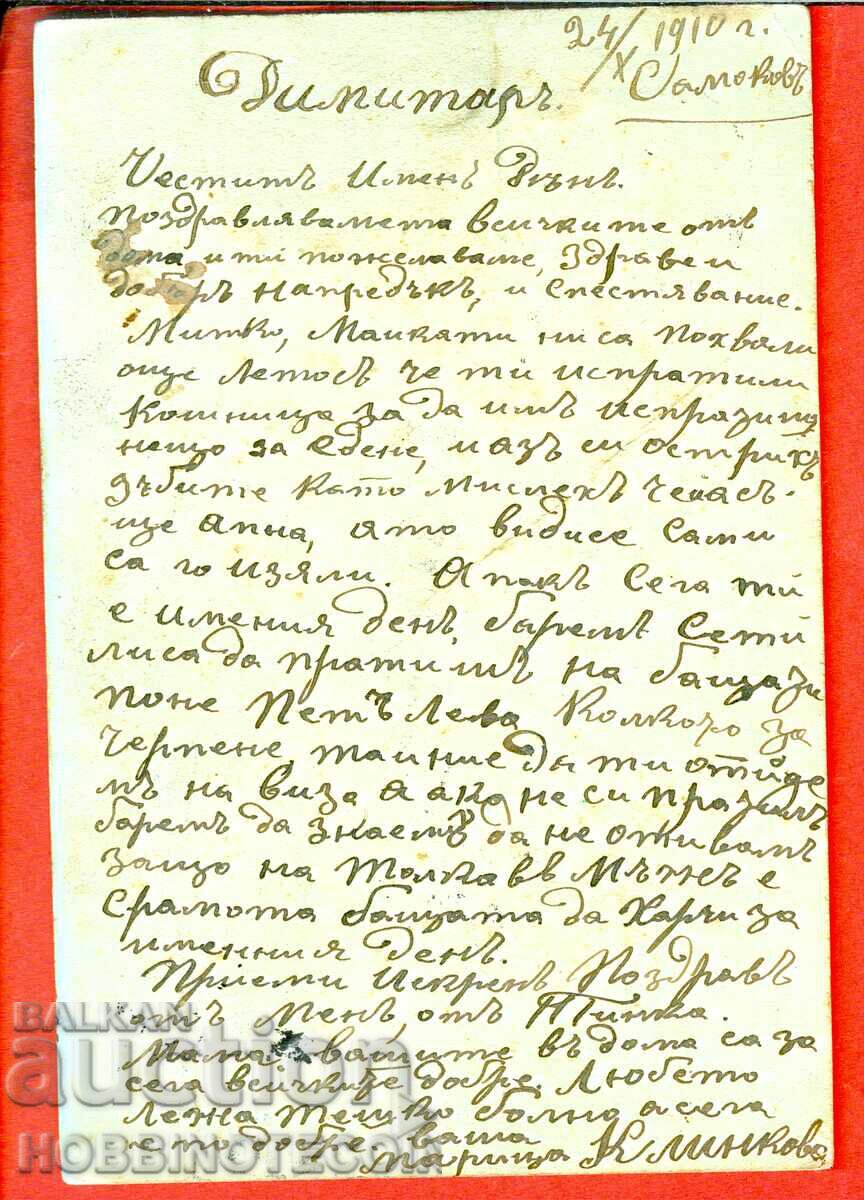 24/X 1910 г.
Самоковъ
Димитаръ.
Честитъ Именъ Днънъ.
поздравлявамета всичките отъ
дома, и ти пожелаваме, здраве и
добаръ напредъкъ, и спестявание.
Митко, Маиката ни са похвали
още летосъ че ти испратили
кошница за да имъ испразниш
нещо за едене, и азъ си острихъ
зъбите като мислехъ че иасъ.
ще апна, ято видисе сами
са го изяли. А пакъ сега ти
е имения денъ, баремъ сети
лиса да пратишъ на баща зи
поне Петъ Лева колкото за
черпене, та и ние да ти отиде
мъ на виза а ако не си пратилъ
баремъ да знаемъ да не отивамъ
защо на толкавъ Мъжъ е
срамота бащата да харчи за
именния денъ.
Приеми Искренъ Поздравъ
отъ Менъ, отъ Тинка.
Мама, вашите въ дома са за
сега всичките добре. Любето
лежа тешко болно а сега
е по добре. ваша
Марица Клинкова
BALKAN
auction
HOBBINOTE.COM